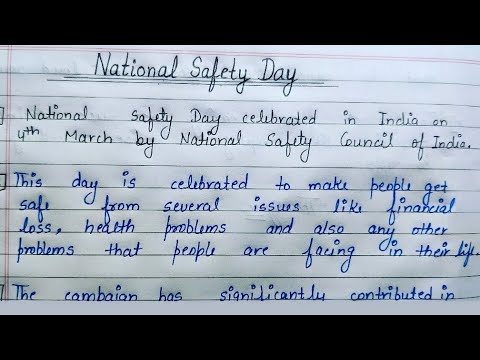 National Safety Day
National safety Day celebrated in India on
4th March by National Safety Council of India.
This day is celebrated to make people get
safe from several issues like financial
loss, health problems and also any other
problems that people are facing in their life.
The cambaian has significantly contributed in